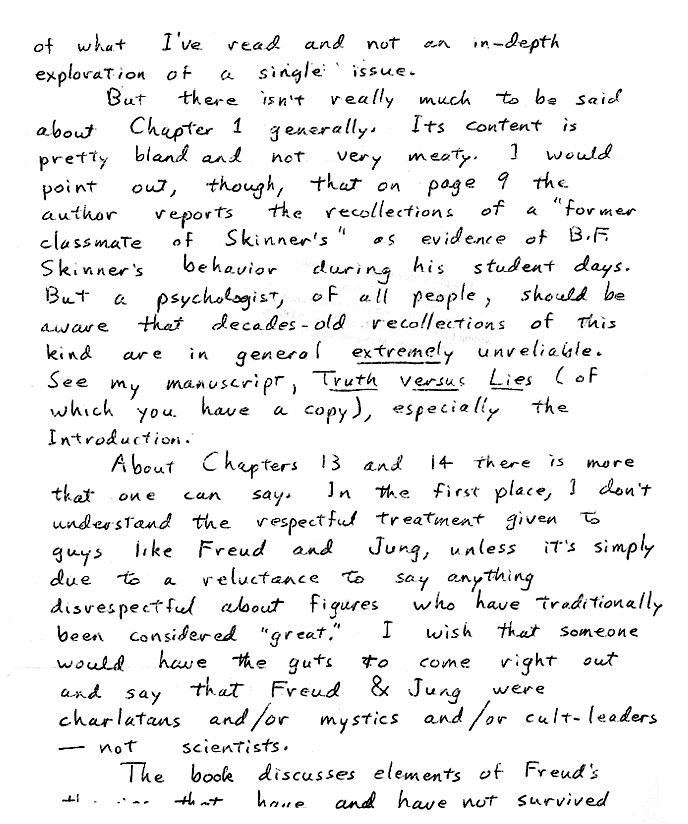 of what I've read and not an in-depth
exploration of a single issue.
But there isn't really much to be said
about Chapter 1 generally. Its content is
pretty bland and not very meaty. I would
point out, though, that on page 9 the
author reports the recollections of a "former
classmate of Skinner's" as evidence of B.F.
Skinner's behavior during his student days.
But a psychologist, of all people, should be
aware that decades-old recollections of this
kind are in general extremely unreliable.
See my manuscript, Truth versus Lies (of
which you have a copy), especially the
Introduction.
About Chapters 13 and 14 there is more
that one can say. In the first place, I don't
understand the respectful treatment given to
guys like Freud and Jung, unless it's simply
due to a reluctance to say anything
disrespectful about figures who have traditionally
been considered "great." I wish that someone
would have the guts to come right out
and say that Freud & Jung were
charlatans and/or mystics and/or cult-leaders
— not scientists.
The book discusses elements of Freud's
that have and have not survived